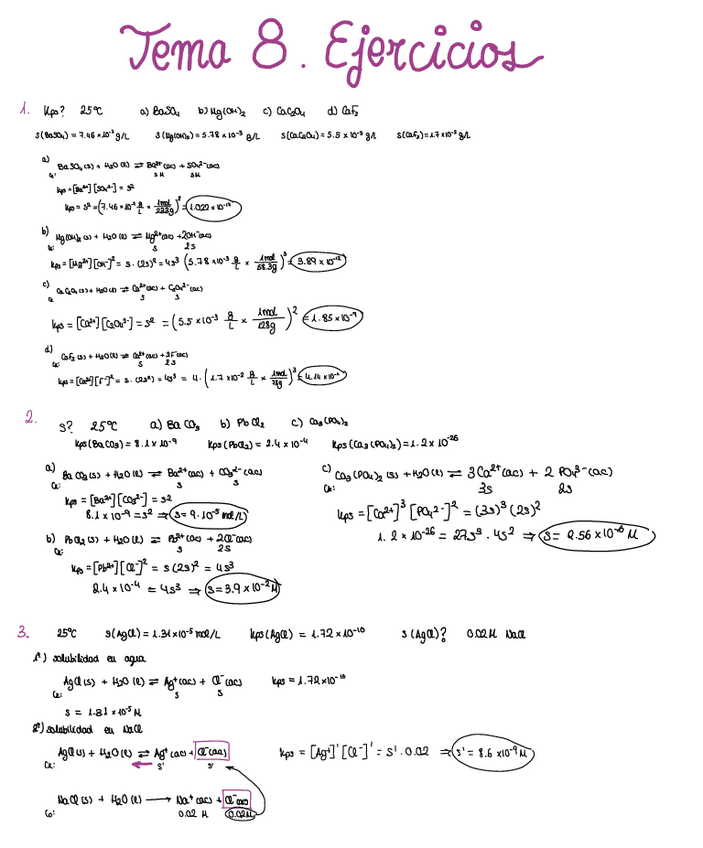 Tema 8. Ejercicios
1. Kps? 25ºC a) BaSO₄ b) Mg(OH)₂ c) CaC₂O₄ d) CaF₂
s(BaSO₄) = 7.46 × 10⁻³ g/L s(Mg(OH)₂) = 5.78 × 10⁻³ g/L s(CaC₂O₄) = 5.5 × 10⁻³ g/L s(CaF₂) = 1.7 × 10⁻² g/L
a)
BaSO₄ (s) + H₂O (l) ⇌ Ba²⁺ (ac) + SO₄²⁻ (ac)
Kps = [Ba²⁺] [SO₄²⁻] = s²
Kps = s² = (7.46 × 10⁻³ g/L × 1mol/233g)² =
b)
Mg(OH)₂ (s) + H₂O (l) ⇌ Mg²⁺ (ac) + 2OH⁻ (ac)
s 2s
Kps = [Mg²⁺] [OH⁻]² = s · (2s)² = 4s³ (5.78 × 10⁻³ g/L × 1mol/58.3g)³ = 3.89 × 10⁻¹²
c)
CaC₂O₄ (s) + H₂O (l) ⇌ Ca²⁺ (ac) + C₂O₄²⁻ (ac)
s s
Kps = [Ca²⁺] [C₂O₄²⁻] = s² = (5.5 × 10⁻³ g/L × 1mol/128g)² = 1.85 × 10⁻⁹
d)
CaF₂ (s) + H₂O (l) ⇌ Ca²⁺ (ac) + 2F⁻ (ac)
s 2s
Kps = [Ca²⁺] [F⁻]² = s · (2s)² = 4s³ = 4 · (1.7 × 10⁻² g/L × 1mol/78g)³ =
2. s? 25ºC a) BaCO₃ b) PbCl₂ c) Ca₃(PO₄)₂
Kps (BaCO₃) = 8.1 × 10⁻⁹ Kps (PbCl₂) = 2.4 × 10⁻⁴ Kps (Ca₃(PO₄)₂) = 1.2 × 10⁻²⁶
a) BaCO₃ (s) + H₂O (l) ⇌ Ba²⁺ (ac) + CO₃²⁻ (ac)
s s
Kps = [Ba²⁺] [CO₃²⁻] = s²
8.1 × 10⁻⁹ = s² ⇒ s = 9 · 10⁻⁵ mol/L
b) PbCl₂ (s) + H₂O (l) ⇌ Pb²⁺ (ac) + 2Cl⁻ (ac)
s 2s
Kps = [Pb²⁺] [Cl⁻]² = s (2s)² = 4s³
2.4 × 10⁻⁴ = 4s³ ⇒ s = 3.9 × 10⁻² M
c) Ca₃(PO₄)₂ (s) + H₂O (l) ⇌ 3Ca²⁺ (ac) + 2 PO₄³⁻ (ac)
3s 2s
Kps = [Ca²⁺]³ [PO₄²⁻]² = (3s)³ (2s)²
1.2 × 10⁻²⁶ = 27s³ · 4s² ⇒ s = 2.56 × 10⁻⁶ M
3. 25ºC s(AgCl) = 1.31 × 10⁻⁵ mol/L Kps (AgCl) = 1.72 × 10⁻¹⁰ s (AgCl)? 0.02 M NaCl
1º) solubilidad en agua
AgCl (s) + H₂O (l) ⇌ Ag⁺ (ac) + Cl⁻ (ac) Kps = 1.72 × 10⁻¹⁰
s s
s = 1.31 × 10⁻⁵ M
2º) solubilidad en NaCl
AgCl (s) + H₂O (l) ⇌ Ag⁺ (ac) + Cl⁻ (ac) Kps = [Ag⁺]' [Cl⁻]' = s' · 0.02 ⇒ s' = 8.6 × 10⁻⁹ M
s' s'
NaCl (s) + H₂O (l) → Na⁺ (ac) + Cl⁻ (ac)
0.02 M 0.02M